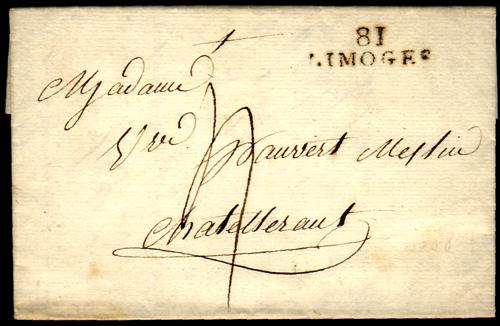 81
LIMOGES
Madame
Vve. Dauvert Meslin
Chatelleraut
4